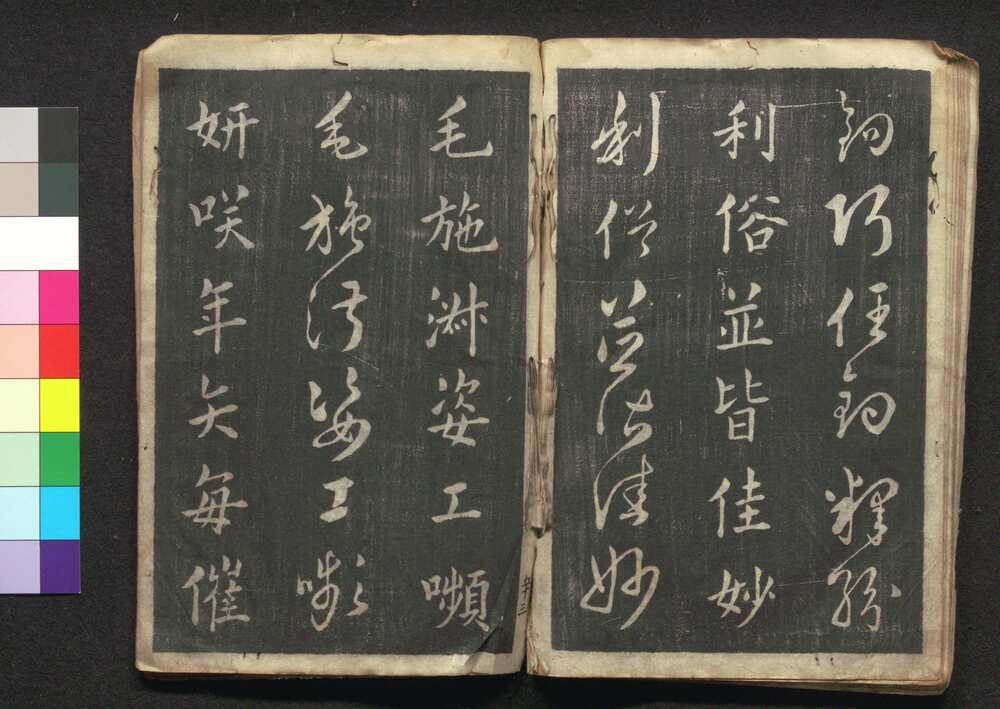 鈞巧任釣釋紛
利俗並皆佳妙
利俗並皆佳妙
毛施淑姿工嚬
毛施淑姿工嚬
妍咲年矢每催